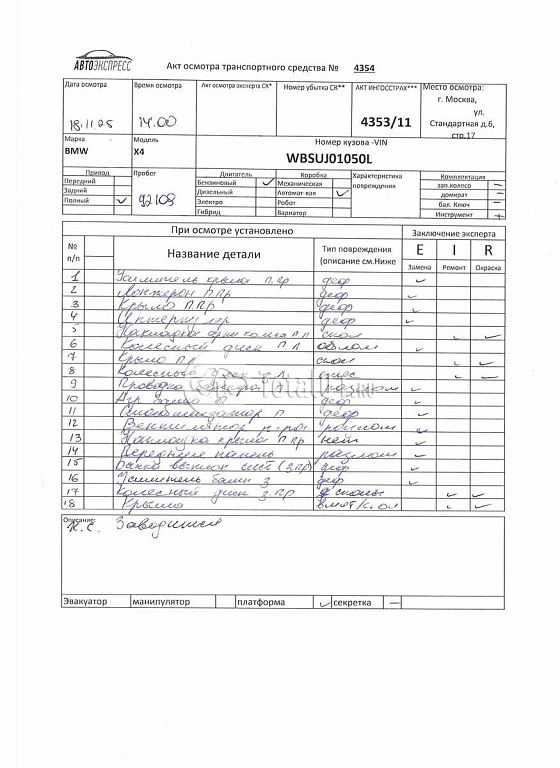 АВТОЭКСПРЕСС
Акт осмотра транспортного средства № 4354
Дата осмотра
18.11.25
Время осмотра
14.00
Акт осмотра эксперта СК*
Номер убытка СК**
АКТ ИНГОССТРАХ***
4353/11
Место осмотра:
г. Москва,
ул.
Стандартная д.6,
стр.17
Марка
BMW
Модель
X4
Номер кузова -VIN
WBSUJ01050L
Привод
Передний
Задний
Полный ✓
Пробег
92109
Двигатель
Бензиновый ✓
Дизельный
Электро
Гибрид
Коробка
Механическая
Автомат-кая ✓
Робот
Вариатор
Характеристика
повреждения
Комплектация
зап.колесо –
домкрат –
бал. Ключ –
Инструмент +
При осмотре установлено
Заключение эксперта
№
п/п
Название детали
Тип повреждения
(описание см.Ниже
E I R
Замена Ремонт Окраска
1 Усилитель крыла п.пр деф ✓
2 Лонжерон п.пр деф ✓
3 Крыло п.пр деф ✓
4 деф ✓
5 п л скол ✓ ✓
6 Колесный диск п л облом ✓
7 Крыло п л скол ✓ ✓
8 Колесный диск ✓ ✓
9 Проводка разлом ✓
10 деф ✓
11 п деф ✓
12 Вентилятор разлом ✓
13 крыла п пр нет ✓
14 Передняя панель разлом ✓
15 деф ✓
16 Усилитель 3 деф ✓
17 Колесный диск з.пр сколы ✓ ✓
18 Крыша вмят/скол ✓ ✓
Описание:
н.с. Заводится
Эвакуатор манипулятор платформа ✓ секретка –